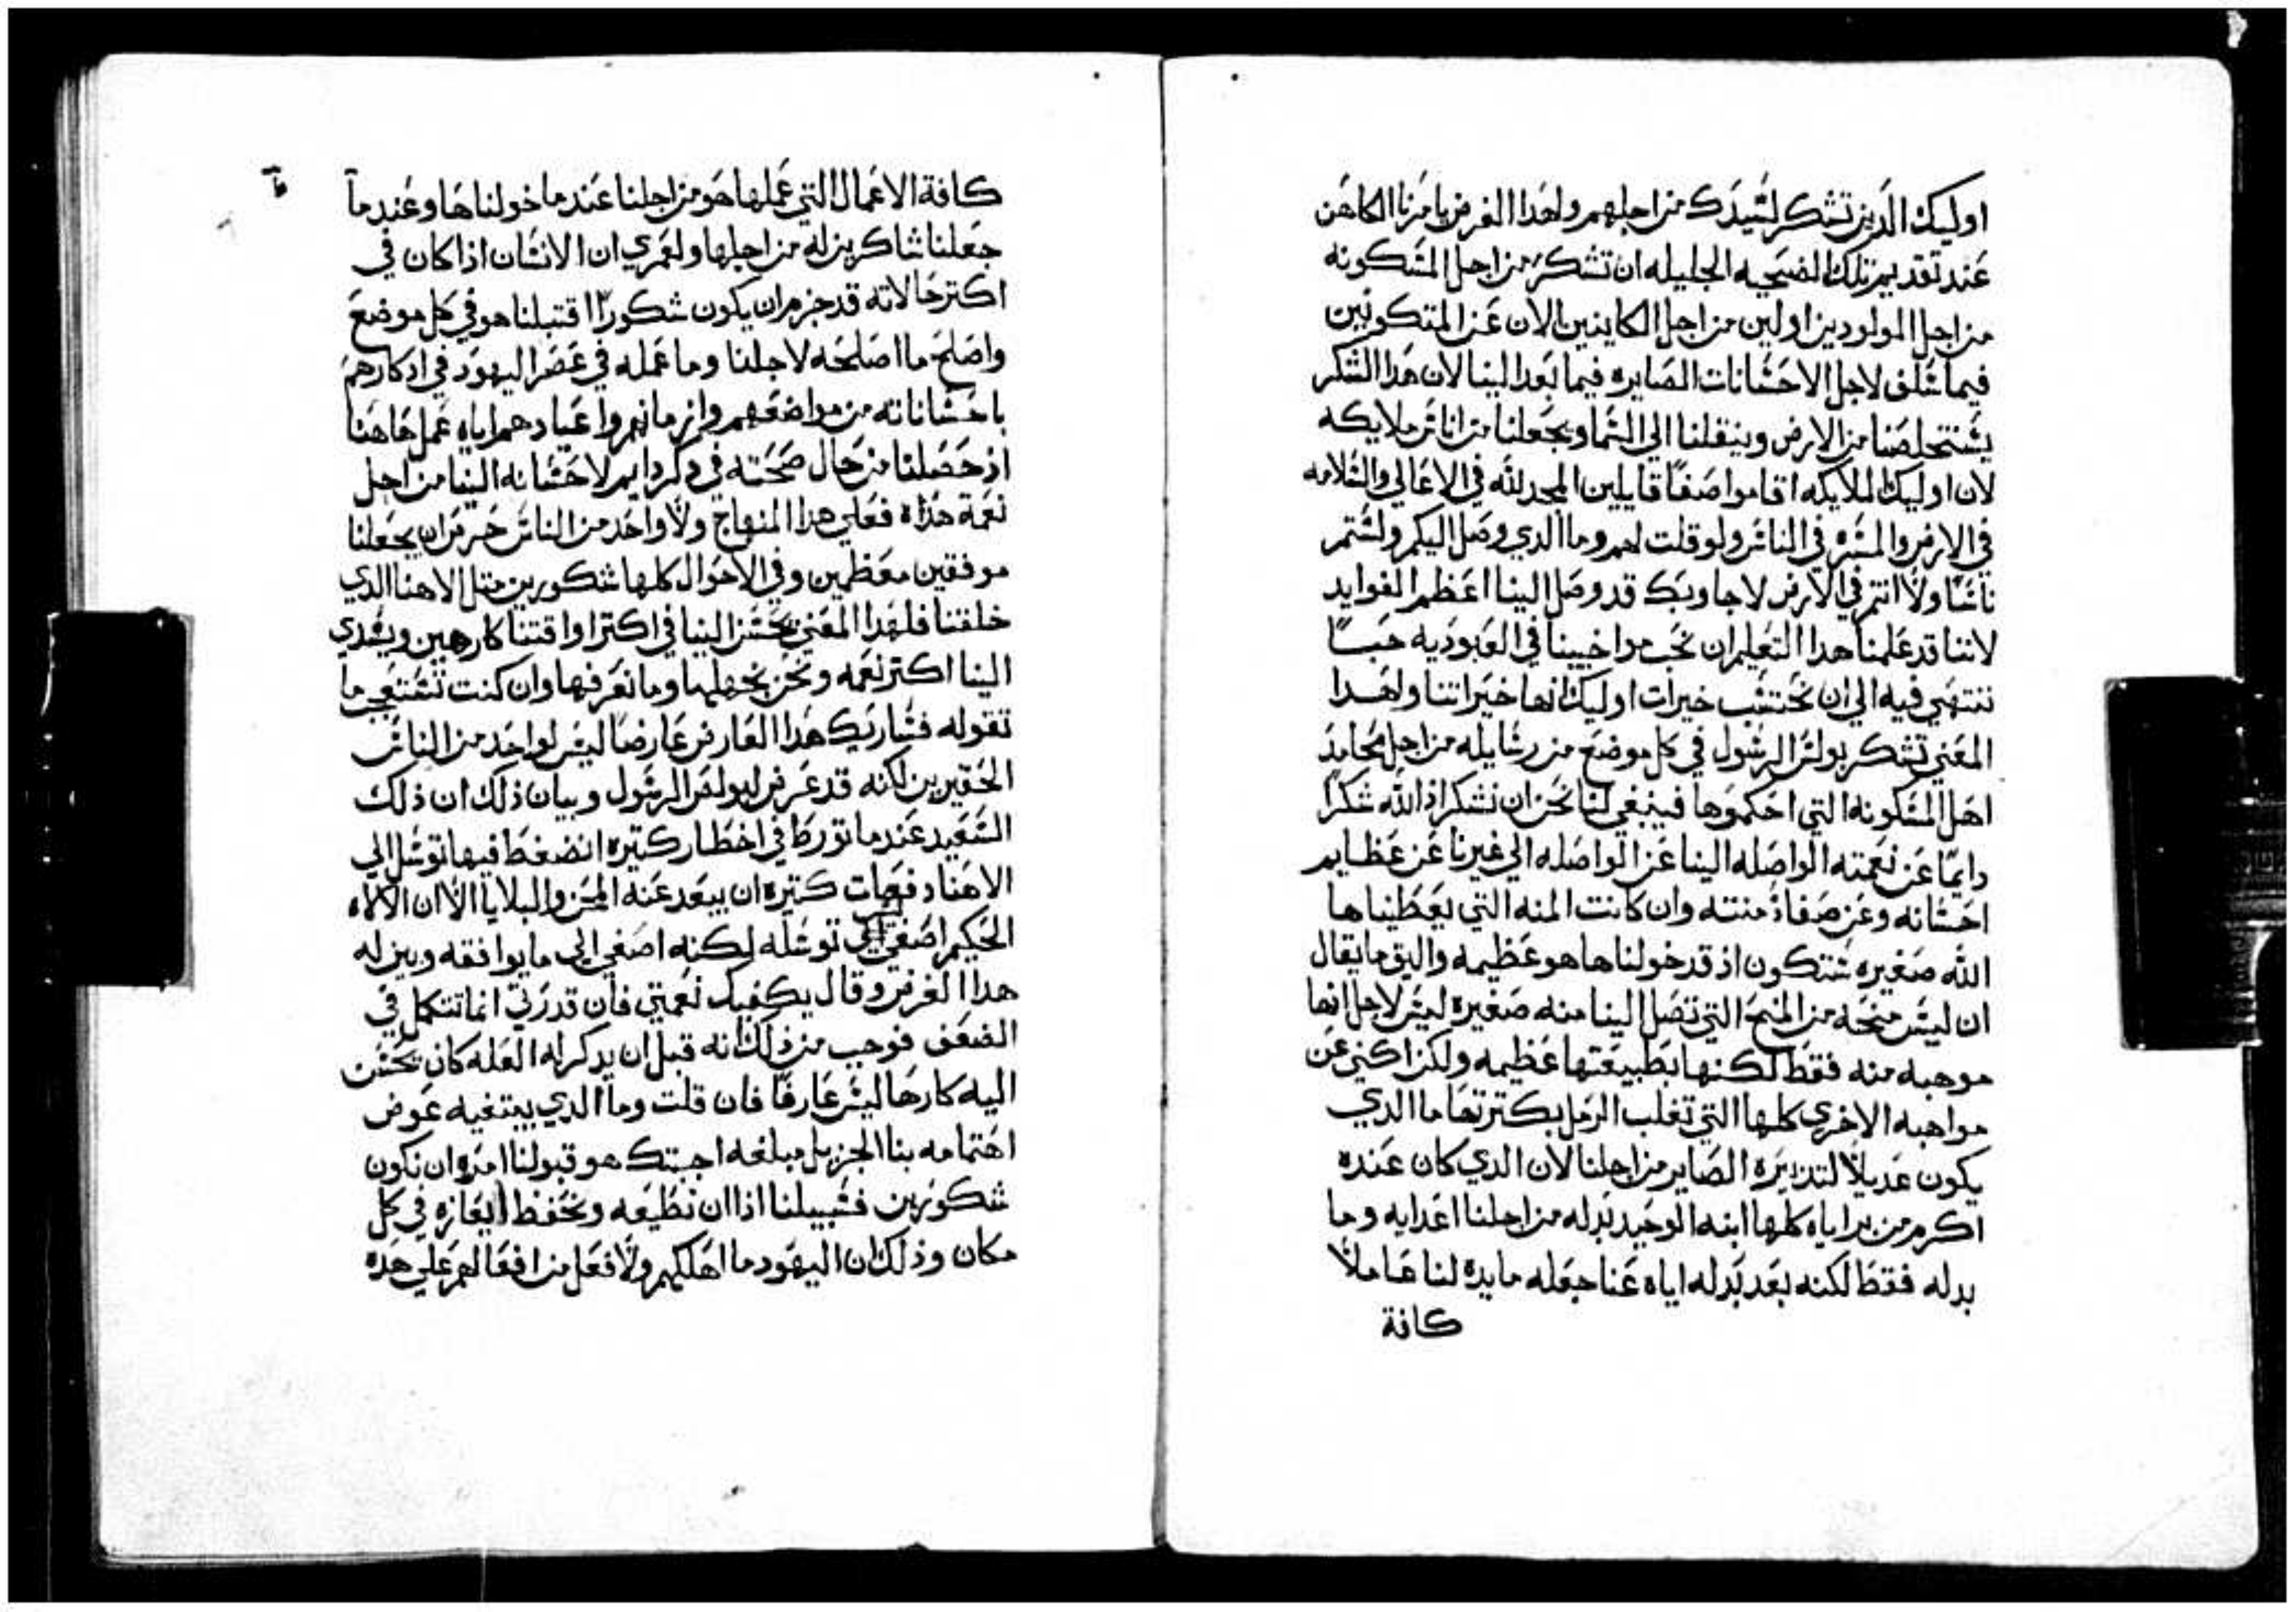 اوليك الدين تشكر لسيدك من اجلهم ولهدا الغرض يامرنا الكاهن
عند تقديم تلك الضحيه الجليله ان تشكر من اجل المسكونه
من اجل المولودين اولين من اجل الكاينين الان عن المتكونين
فيما سلف لاجل الاحسانات الصايره فيما بعد الينا لان هدا الشكر
يستخلصنا من الارض وينقلنا الي السما ويجعلنا من اناس ملايكه
لان اوليك الملايكه اقاموا صفا قايلين المجد لله في الاعالي والسلامه
في الارض والمسره في الناس ولو قلت لهم وما الدي وصل اليكم ولستم
ناسا ولا انتم في الارض لاجاوبك قد وصل الينا اعظم الفوايد
لاننا قد علمنا هدا التعليم ان نحب مواخيينا في العبوديه حبا
ننتهي فيه الي ان نحتسب خيرات اوليك انها خيراتنا ولهدا
المعني تشكر بولس الرسول في كل موضع من رسايله من اجل محامد
اهل المسكونه التي احكموها فينبغي لنا نحن ان نشكر اذا الله شكرا
دايما عن نعمته الواصله الينا عن الواصله الي غيرنا عن عظايم
احسانه وعن صفاذ منته وان كانت المنه التي يعطيناها
الله صغيره ستكون اذ قد خولناها هو عظيمه واليق ما يقال
ان ليس منحه من المنح التي تصل الينا منه صغيره ليس لاجل انها
موهبه منه فقط لكنها بطبيعتها عظيمه ولكن اكني عن
مواهبه الاخري كلها التي تغلب الرمل بكترتها ما الدي
يكون عديلا لتدبيره الصاير من اجلنا لان الدي كان عنده
اكرم من براياه كلها ابنه الوحيد بدله من اجلنا اعدايه وما
بدله فقط لكنه بعد بدله اياه عنا جعله مايده لنا عاملا
كافة
كافة الاعمال التي عملها هو من اجلنا عند ما خولناها وعند ما
جعلنا شاكرين له من اجلها ولعمري ان الانسان اذا كان في
اكتر حالاته قد جزم ان يكون شكورا اقتبلنا هو في كل موضع
واصلح ما اصلحه لاجلنا وما عمله في عصر اليهود في ادكارهم
باحساناته من مواضعهم وازمانهم واعيادهم اياه عمل هاهنا
اذ حصلنا من حال صحته في دكر دايم لاحسانه الينا من اجل
نعمة هذاه فعلي هدا المنهاج ولا واحد من الناس حرص ان يجعلنا
موفقين معظمين وفي الاحوال كلها شكورين متل الاهنا الدي
خلقنا فلهدا المعني يحسن الينا في اكتر اواقتنا كارهين ويسدي
الينا اكتر نعمه ونحن نجهلها وما نعرفها وان كنت تستعجب ما
نقوله فساريك هدا العارض عارضا ليس لواحد من الناس
الحقيرين لكنه قد عرض لبولس الرسول وبيان ذلك ان ذلك
السعيد عند ما تورط في اخطار كتيره انضغط فيها توسل الي
الاهنا دفعات كتيره ان يبعد عنه المحن والبلايا الا ان الالاه
الحكيم اصغي الي توسله لكنه اصغي الي ما يوافقه وبين له
هدا الغرض وقال يكفيك نعمتي فان قدرتي انما تتكمل في
الضعف فوجب من ذلك انه قبل ان يدكر له العله كان يحسن
اليه كارها ليس عارفا فان قلت وما الدي يبتغيه عوض
اهتمامه بنا الجزيل مبلغه اجبتك هو قبولنا امره ان نكون
شكورين فسبيلنا اذا ان نطيعه ونحفظ ايعازه في كل
مكان وذلك ان اليهود ما اهلكهم ولا فعل من افعالهم علي هده